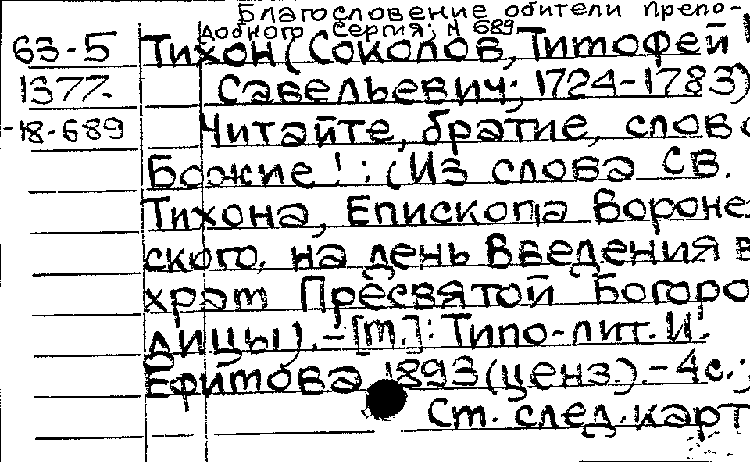 Благословение обители препо-
добного Сергия; N 689
63-5 Тихон (Соколов, Тимофей
1377. Савельевич; 1724-1783)
-18-689 Читайте, братие, слово
Божие! : (Из слова св.
Тихона, Епископа Вороне
ского, на день Введения в
храm Пресвятой Богоро
дицы). - [m.]: Типо-лит. И.
Ефимова 1893 (ценз). - 4с.;
Ст. след. карт